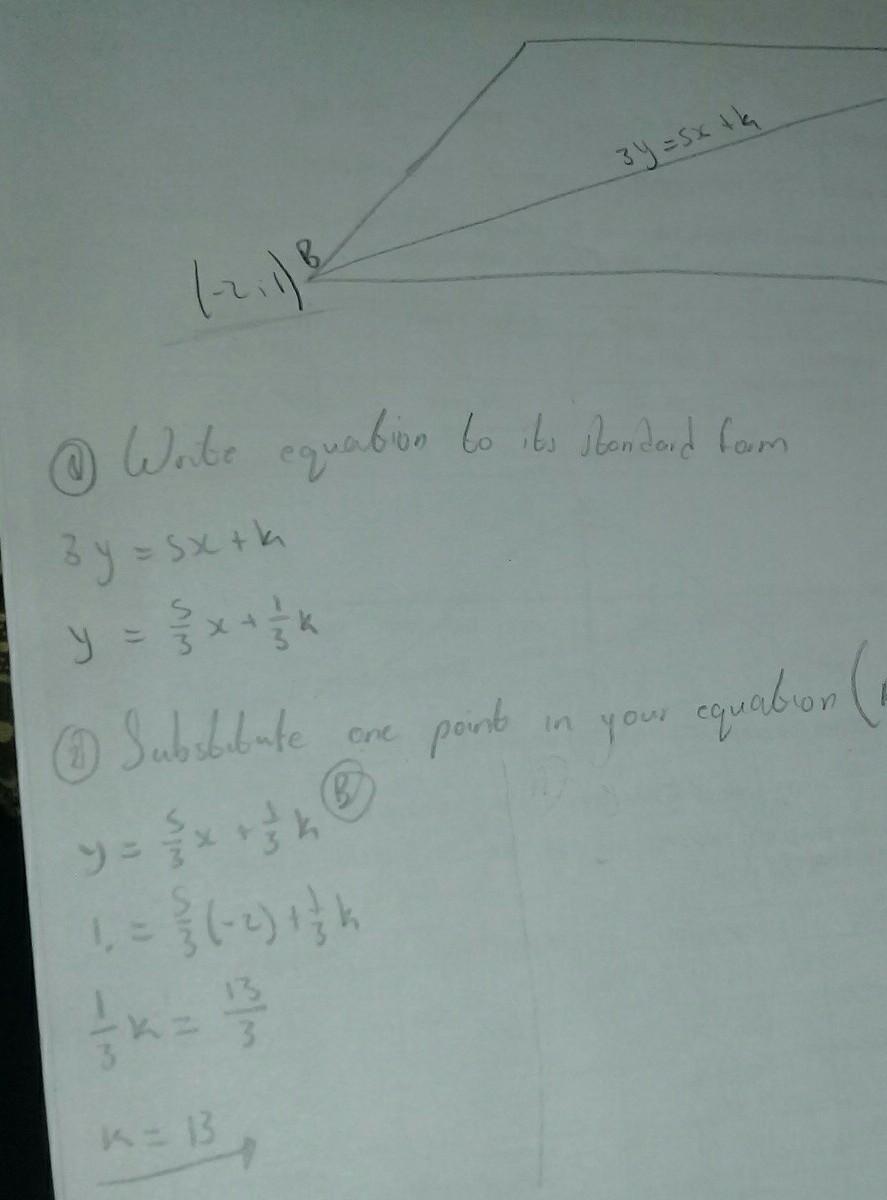 3y=5x+k
B
(-2;1)
① Write equation to its standard form
3y = 5x + k
y = 5/3 x + 1/3 k
② Substitute one point in your equation (
B
y = 5/3 x + 1/3 k
1. = 5/3 (-2) + 1/3 k
1/3 k = 13/3
k = 13